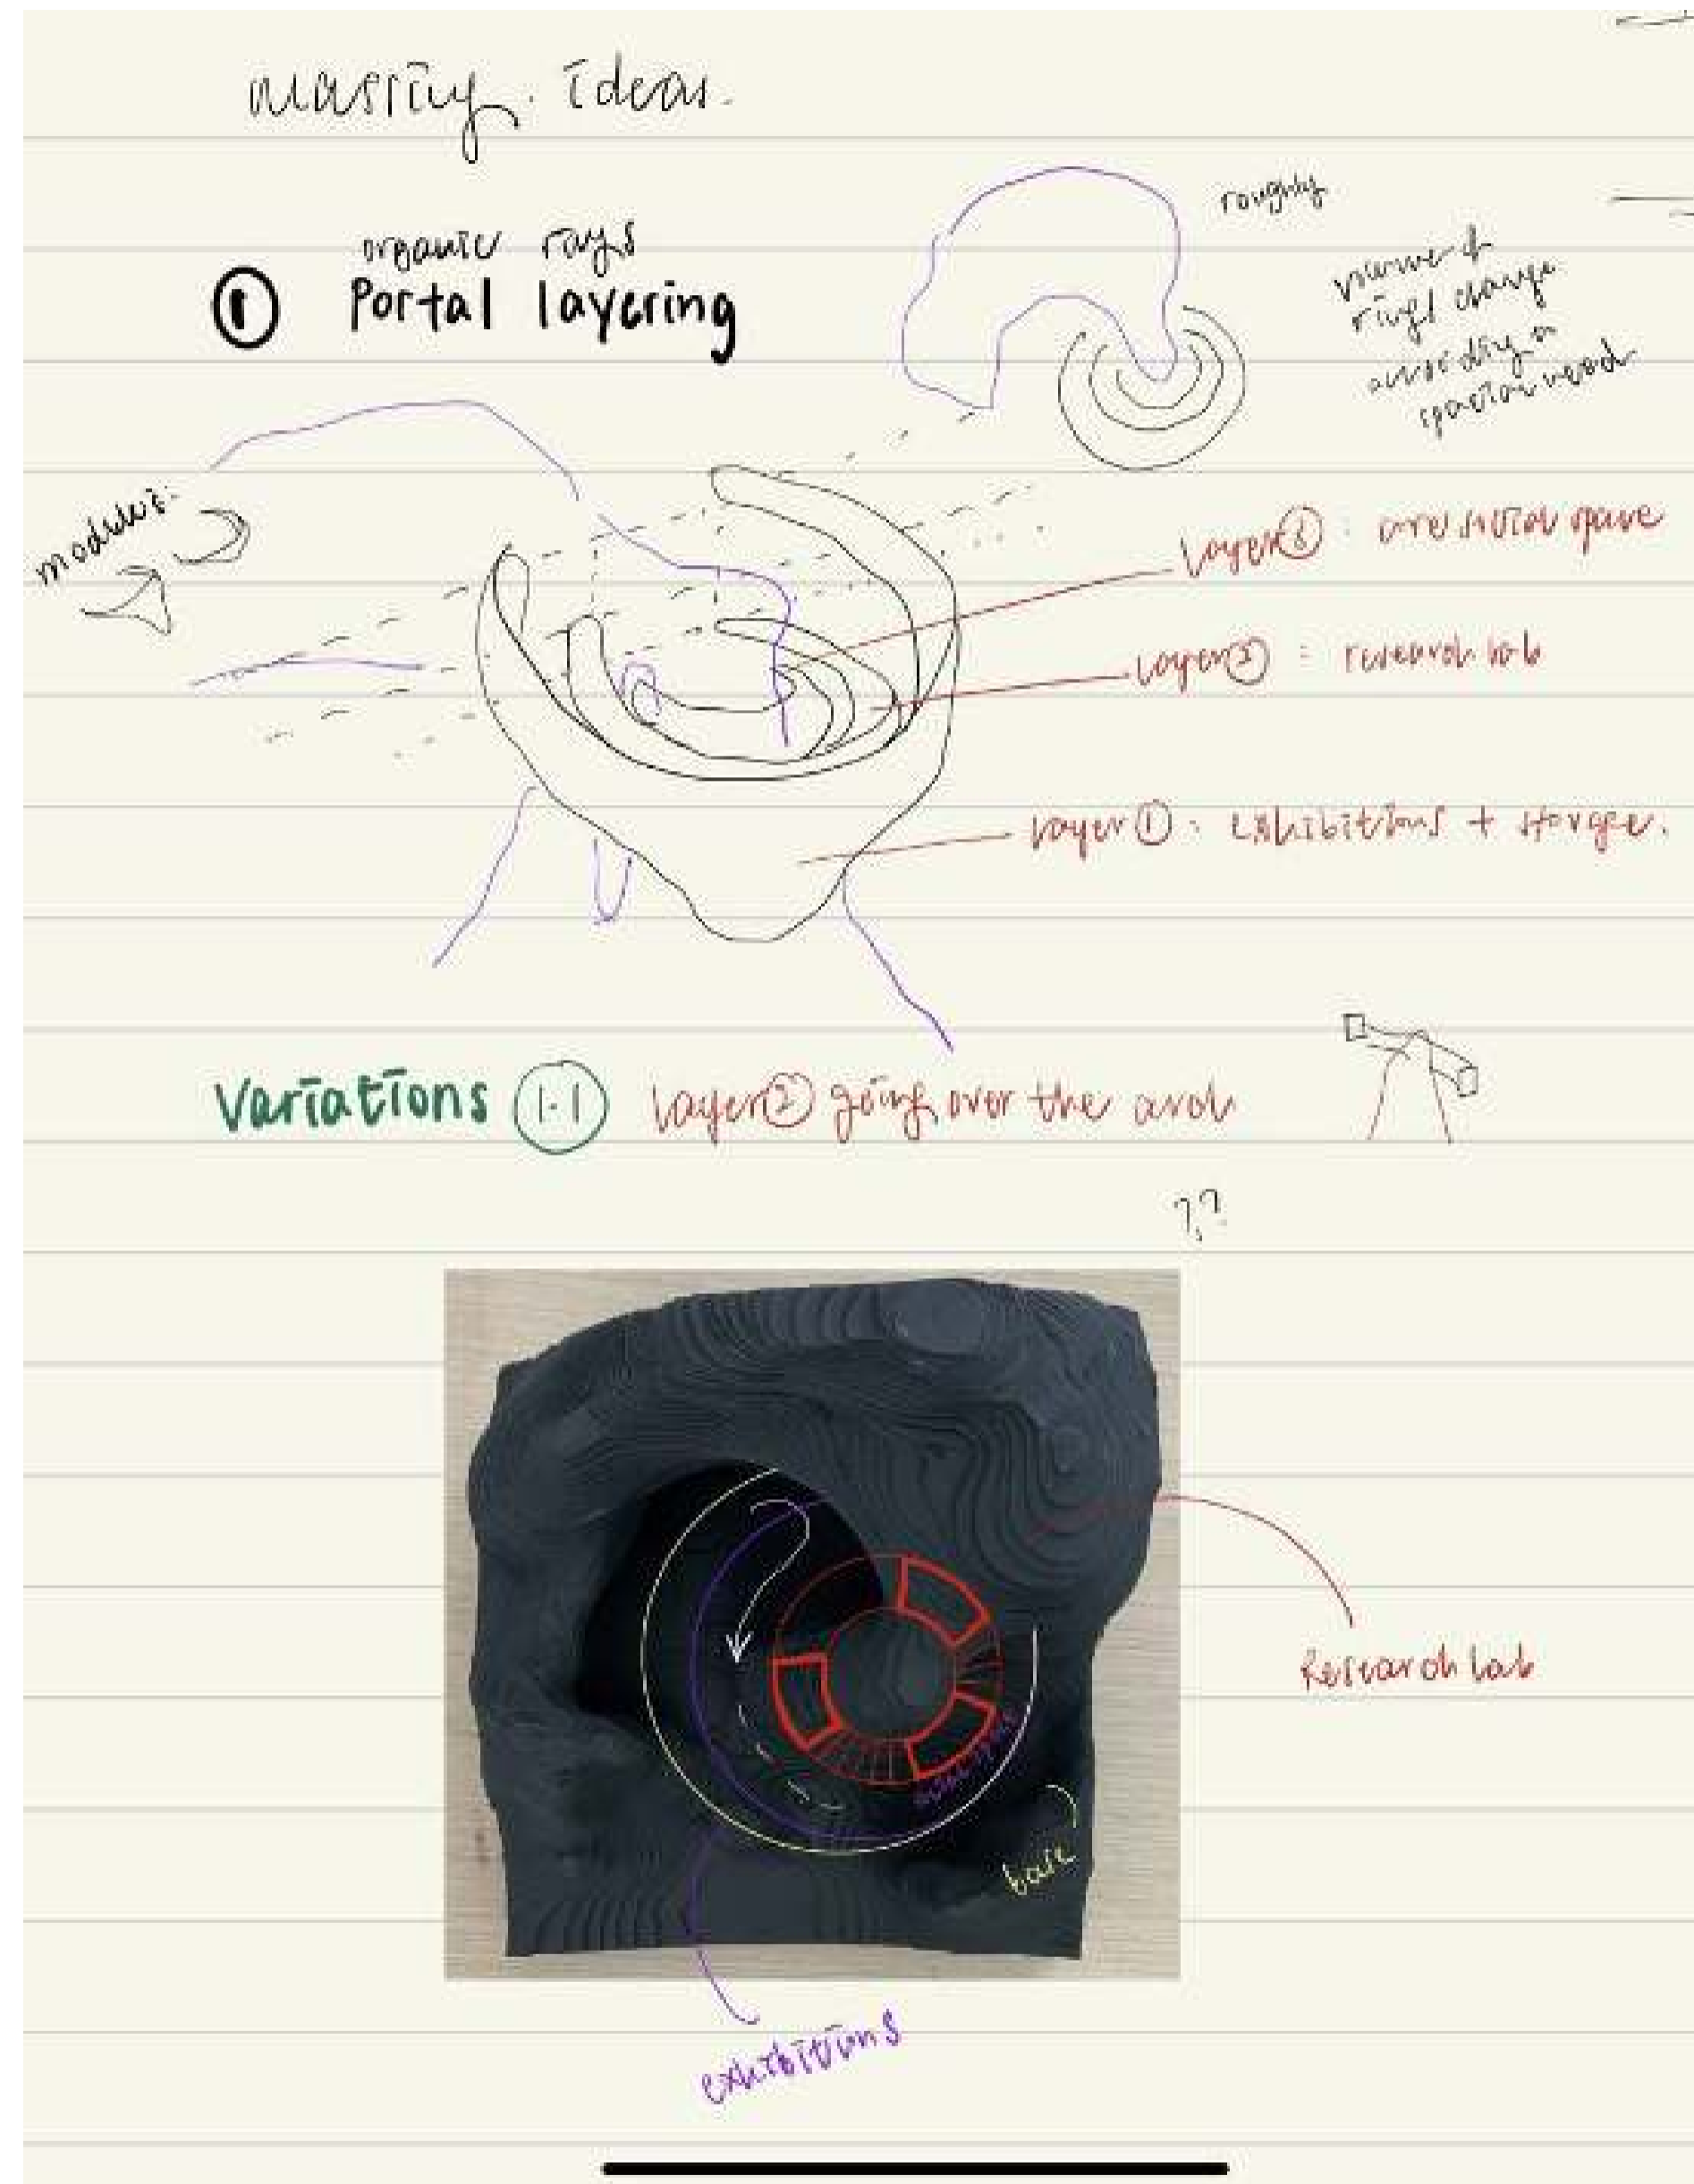 massing ideas.
organic rays
① Portal layering
roughly
volume of
rings change
according on
spatial need
modules:
layer③: core social space
layer② : research lab
layer①: exhibitions + storage.
Variations 1.1 layer② going over the arch
??
Research lab
base
exhibitions